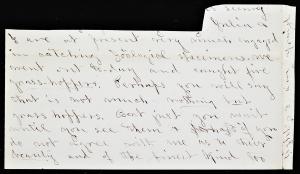 is sunny
Julia &
I are at present very much engaged
in catching Zoological specimens. We
went out to-day and caught five
grass-hoppers. Perhaps you will say
that is not much nothing but
grass hoppers. But just you wait
until you see them & perhaps if you
do not agree with me as to their
beauty and of the finest kind too